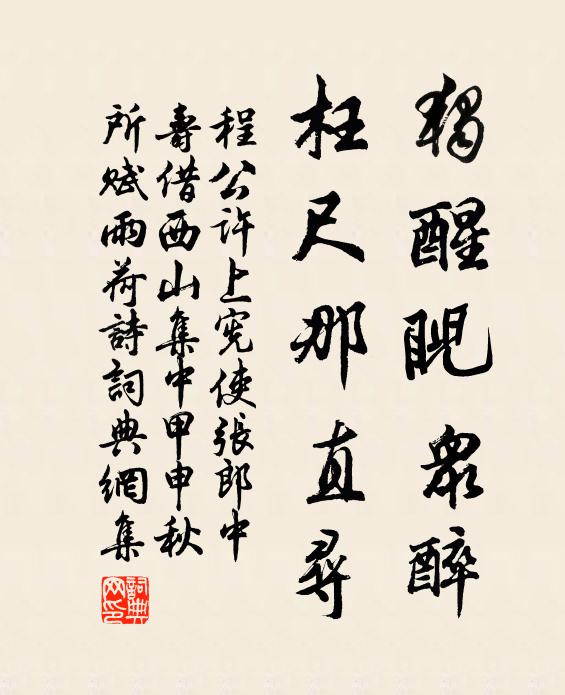 獨醒睨衆醉
枉尺那直尋
程公許上憲使張郎中
壽借西山集中甲申秋
所賦雨荷詩詞典網集
詞典網印